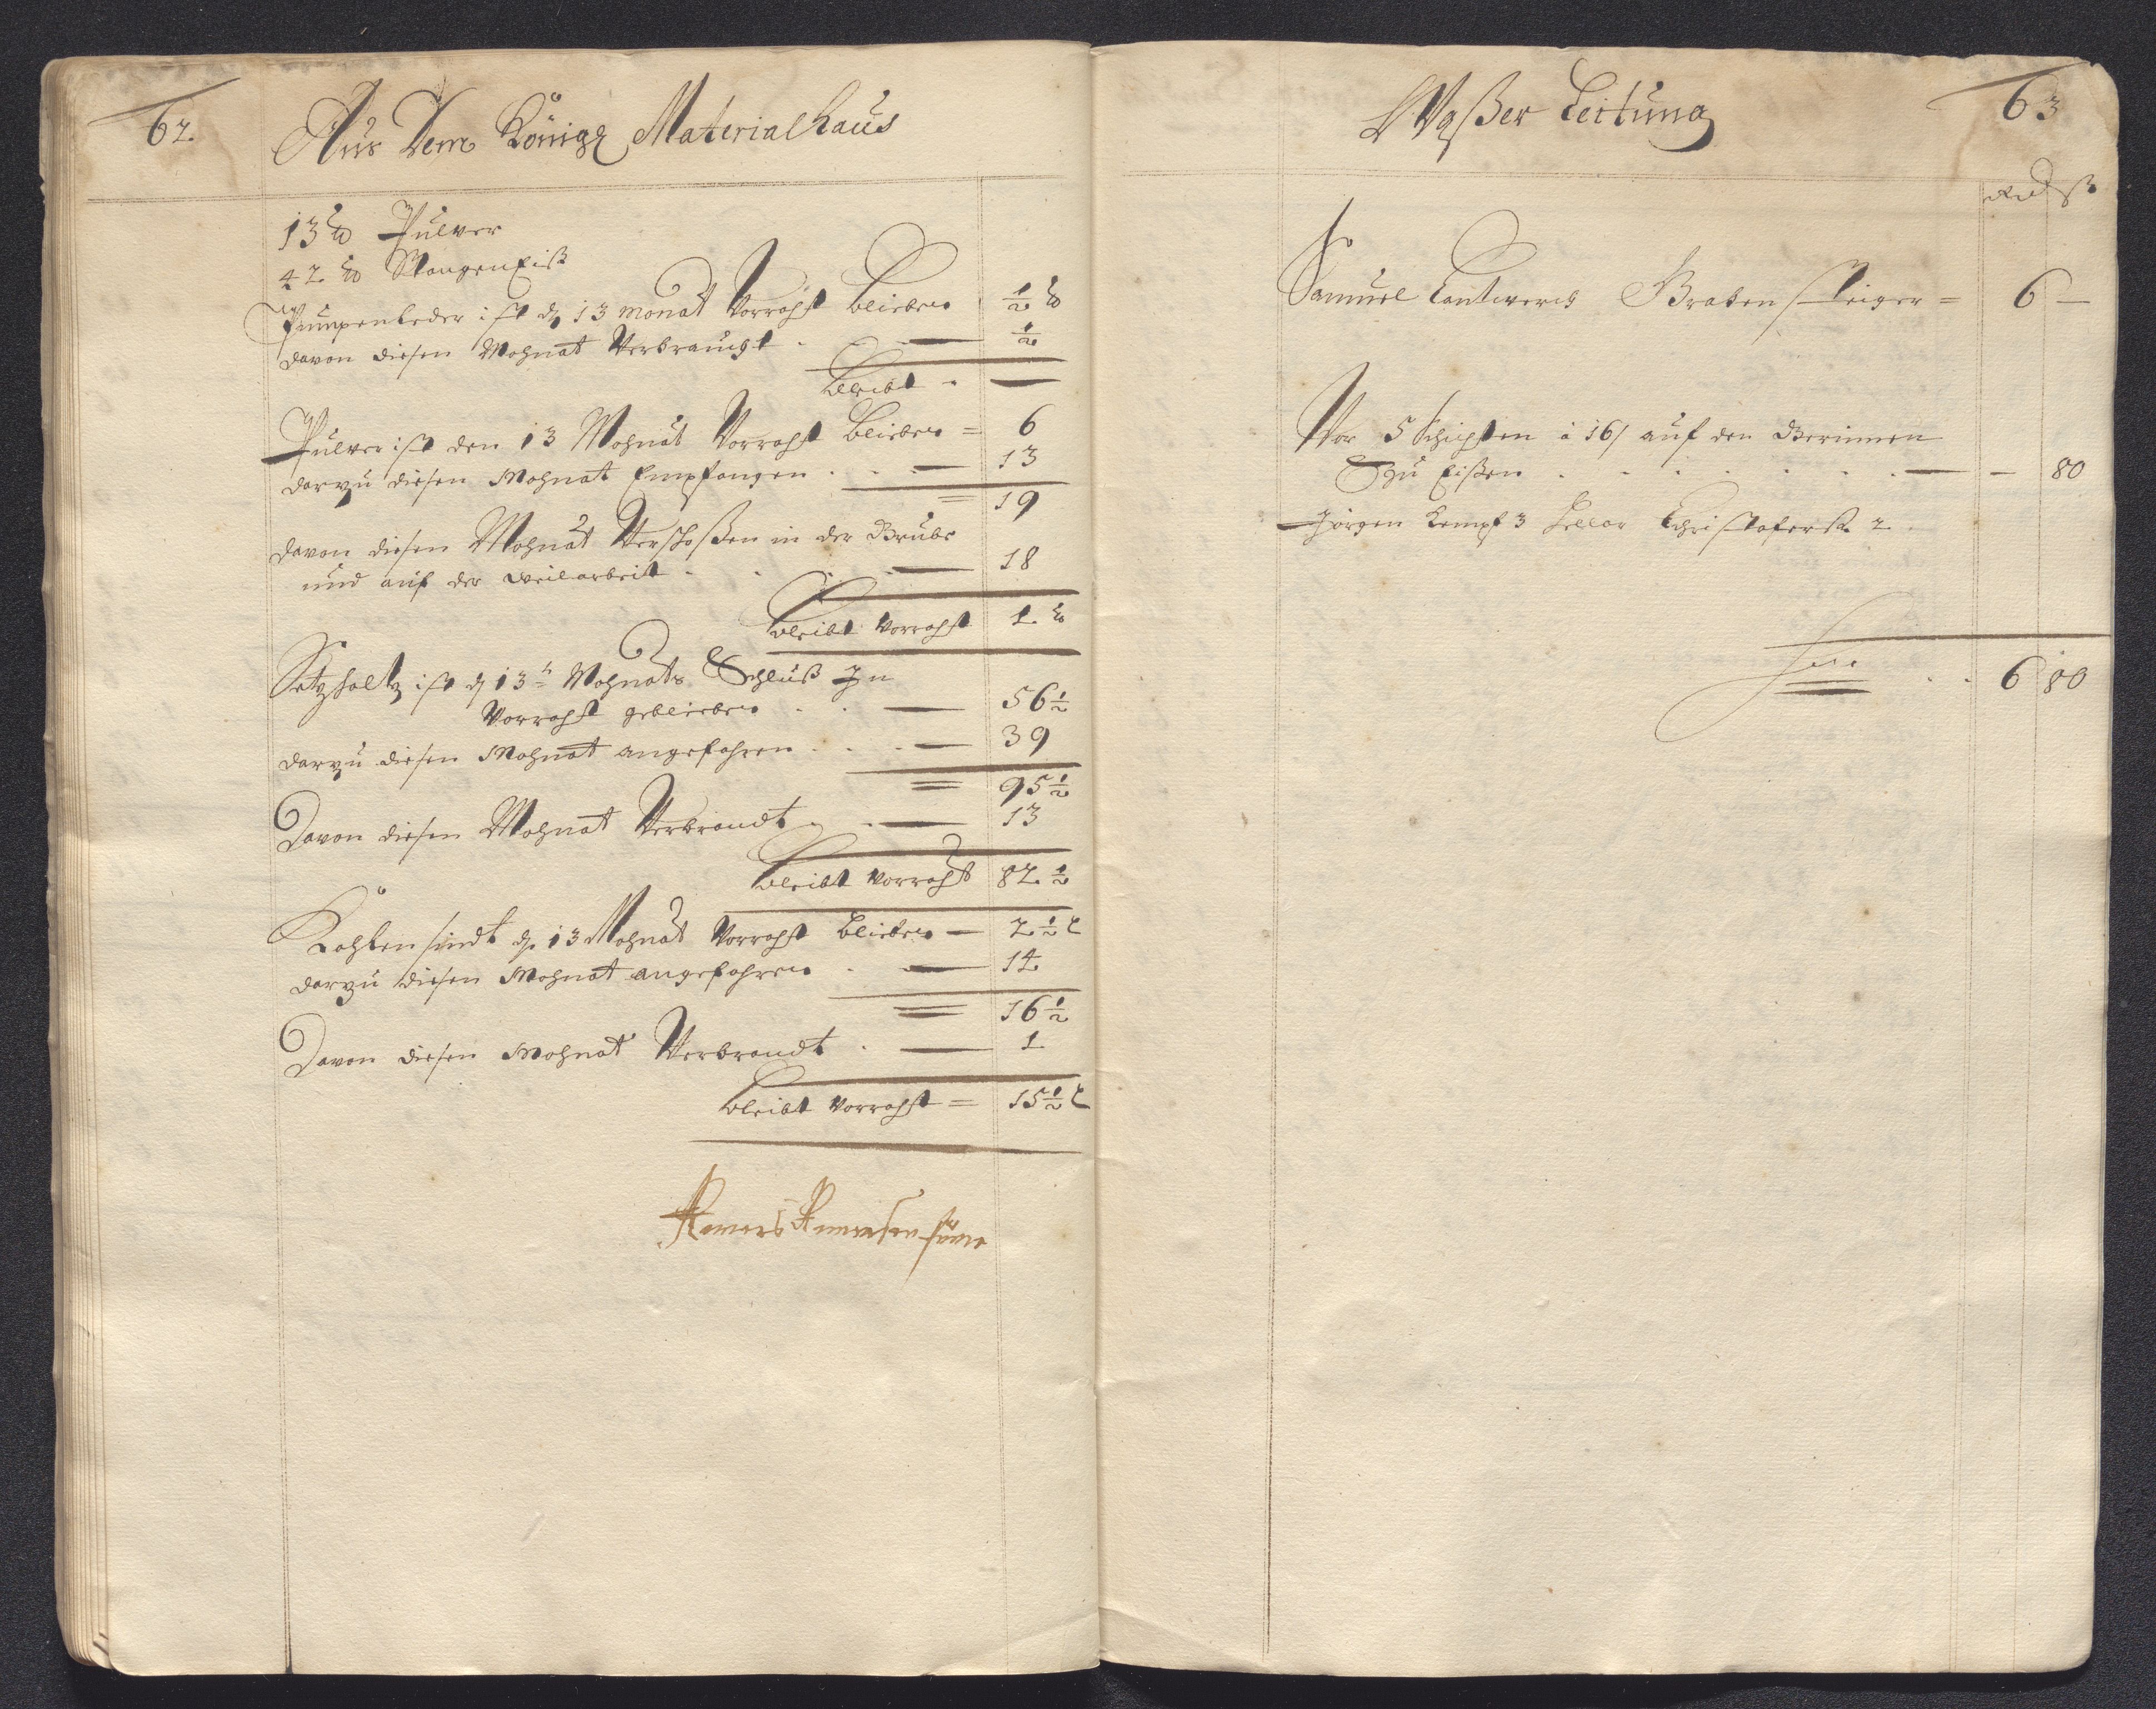 62.
Aus Dem Königl Materialhaus
13 ℔ Pulver
42 ℔ StangenEiß
Pumpenleder ist d 13 monat Vorraht blieben ½ ℔
davon diesen Mohnat Verbraucht . — ½
bleibt . —
Pulver ist den 13 Mohnat Vorraht blieben = 6
darzu diesen Mohnat Empfangen . . . — 13
= 19
davon diesen Mohnat Verschoßen in der Grube
und auf der Weilarbeit . . . — 18
bleibt Vorraht 1 ℔
Setzholtz ist d 13 Mohnats Schluß Jn
Vorraht geblieben . . — 56½
darzu diesen Mohnat angefahren . . . — 39
= 95½
Davon diesen Mohnat Verbrandt . . — 13
bleibt Vorraht 82½
Kohlen sindt d 13 Mohnat Vorraht blieben — 2½ L
darzu diesen Mohnat angefahren . — 14
= 16½
Davon diesen Mohnat Verbrandt . — 1
bleibt Vorraht = 15½ L
63
Waßer Leitung
Rd ß
Samuel Grabensteiger = 6 —
Vor 5 Schichten à 16 / auf den Gerinnen
Zu Eißen . . . . . . . — — 80
Jörgen Kempf 3 Christofers 2
. . 6 80